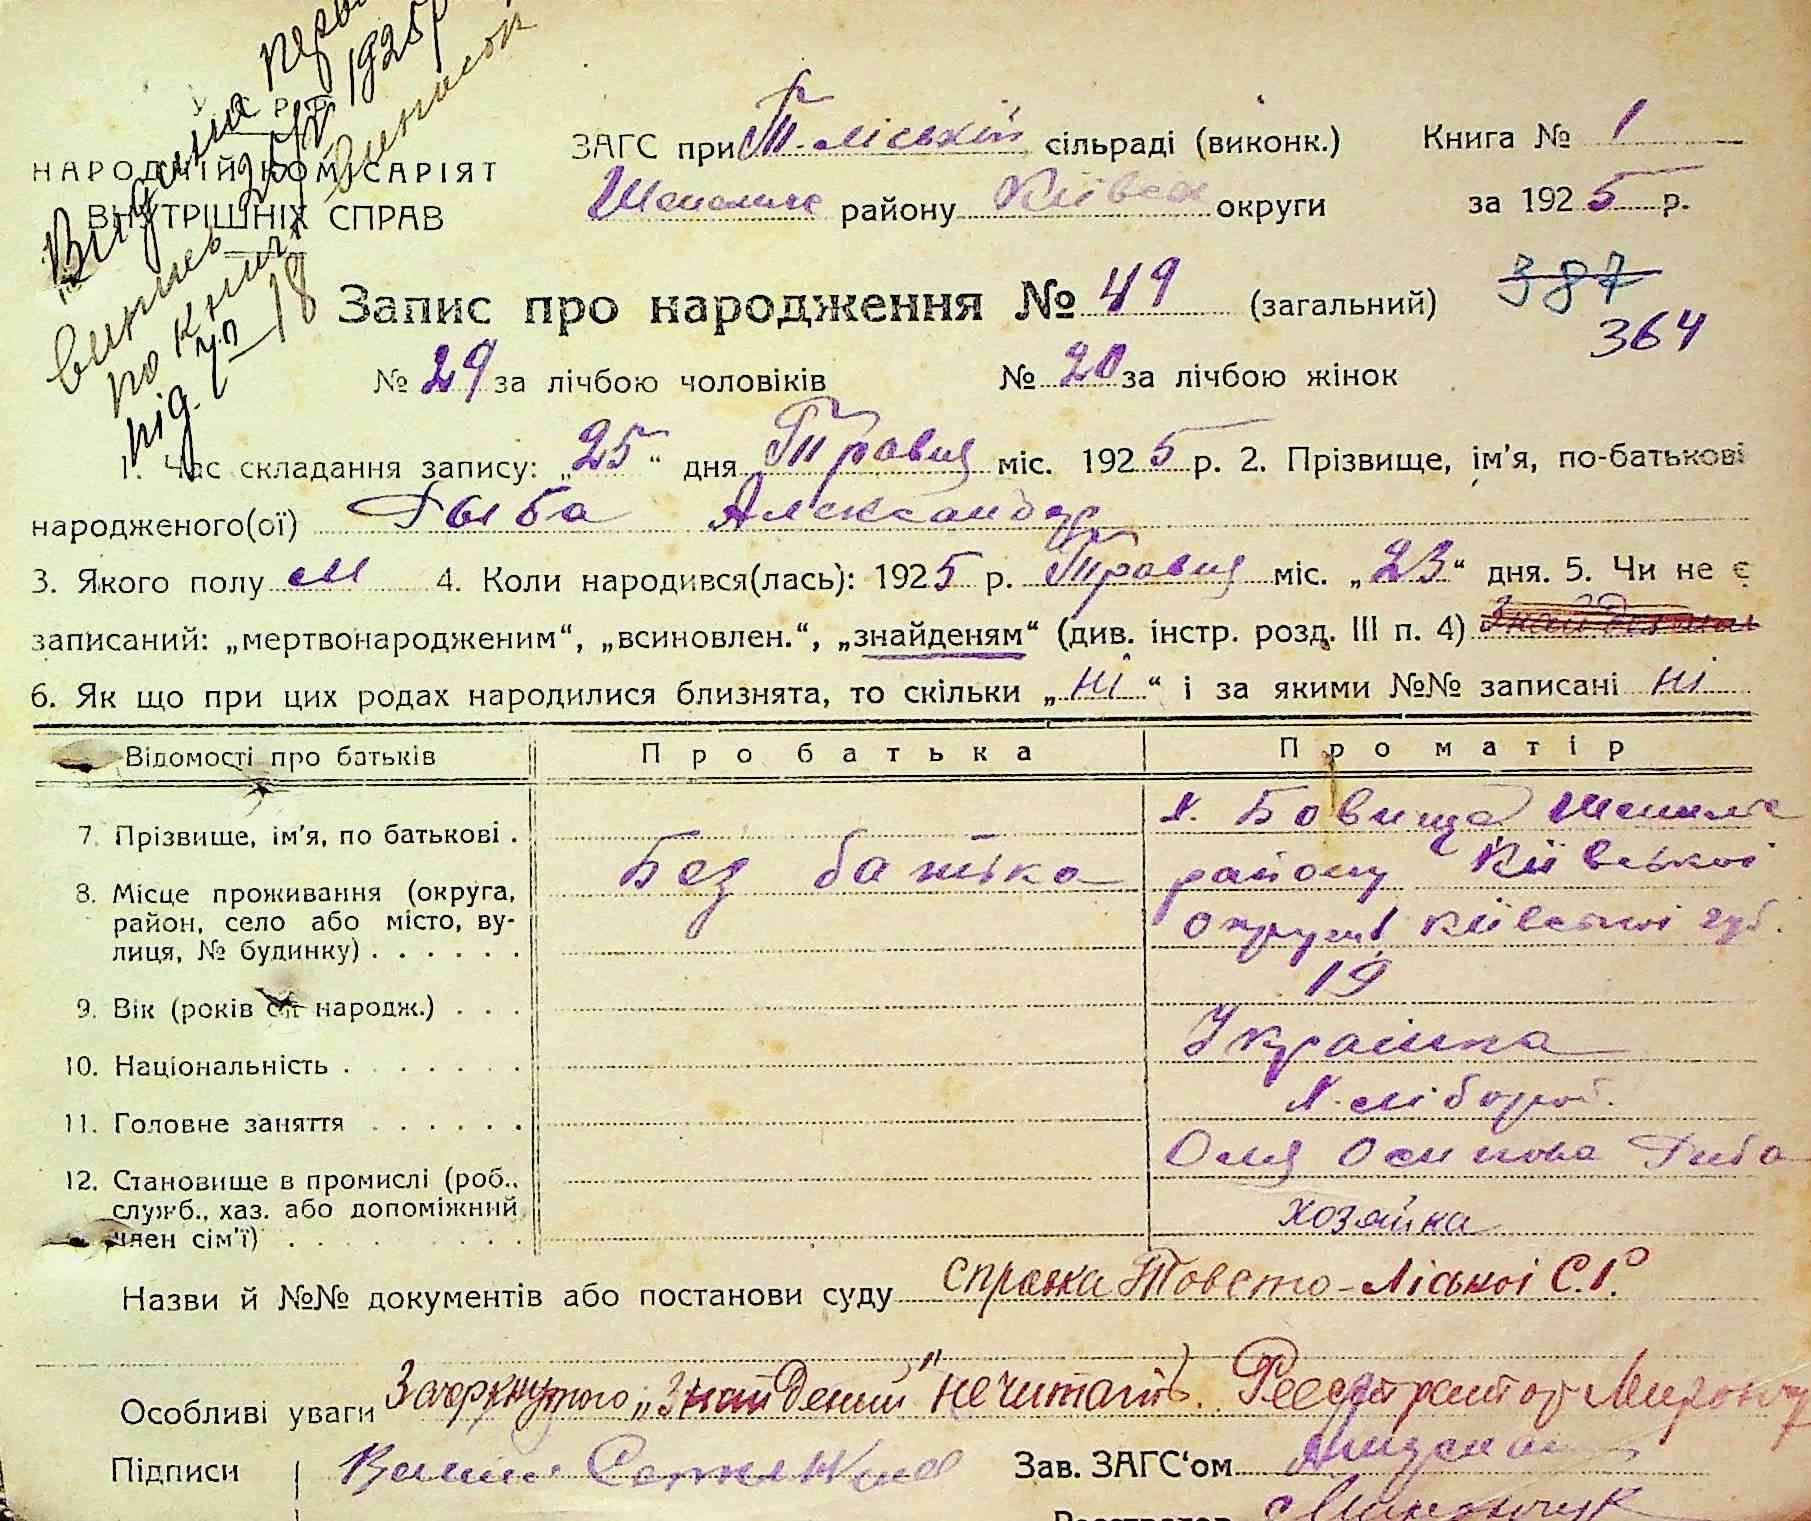 Видана перв
випись 25/IV 1925 р
по книзі виписок
під № 18
У. С. Р. Р.
НАРОДНІЙ КОМІСАРІЯТ
ВНУТРІШНІХ СПРАВ
ЗАГС при Т. Ліській сільраді (виконк.) Книга № 1
Шепелич району Київск округи за 1925 р.
Запис про народження № 49 (загальний) 387
364
№ 29 за лічбою чоловіків № 20 за лічбою жінок
1. Час складання запису: „25“ дня Травця міс. 1925 р. 2. Прізвище, ім'я, по-батькові
народженого(ої) Рыба Александр
3. Якого полу м 4. Коли народився(лась): 1925 р. Травця міс. „23“ дня. 5. Чи не є
записаний: „мертвонародженим“, „всиновлен.“, „знайденям“ (див. інстр. розд. III п. 4)
6. Як що при цих родах народилися близнята, то скільки „ні“ і за якими №№ записані ні
Відомості про батьків Про батька Про матір
7. Прізвище, ім'я, по батькові . х. Бовища Шепелич
8. Місце проживання (округа, Без батька району Київської
район, село або місто, ву-
лиця, № будинку) . . . . . . округи Київської губ.
9. Вік (років од народж.) . . . 19
10. Національність . . . . . . . Українка
11. Головне заняття . . . . . . Хлібороб.
12. Становище в промислі (роб., Оля Осипова Риба
служб., хаз. або допоміжний
член сім'ї) . . . . . . . . . хозяйка
Назви й №№ документів або постанови суду справка Товсто-Ліської С.Р.
Особливі уваги Зачеркнутого „Знайдений" не читать. Реєстратор Миронч
Підписи Зав. ЗАГС'ом
Реєстратор Мирончук